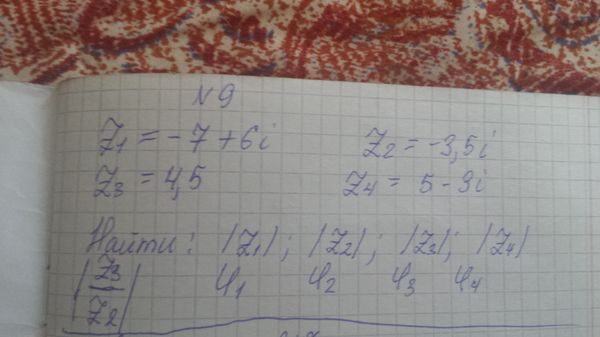 N 9
Z1 = -7 + 6i Z2 = -3,5i
Z3 = 4,5 Z4 = 5 - 3i
Найти: |Z1|; |Z2|; |Z3|; |Z4|
|Z3/Z2| φ1 φ2 φ3 φ4